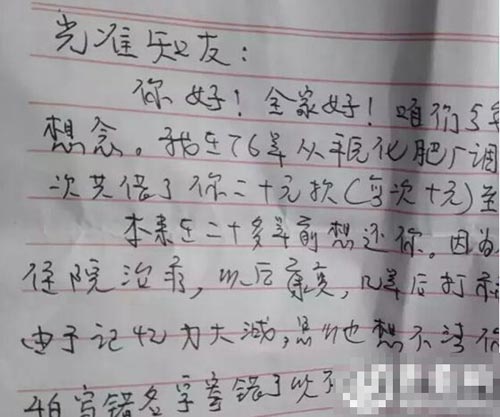 光准知友：
你好！全家好！咱们5年
想念。我在76年从平化肥厂调
次共借了你二十元款(每次十元)至
本来在二十多年前想还你。因为
住院治疗，以后康复，几年后打
由于记忆力大减，也想不清你
怕写错名字寄错了